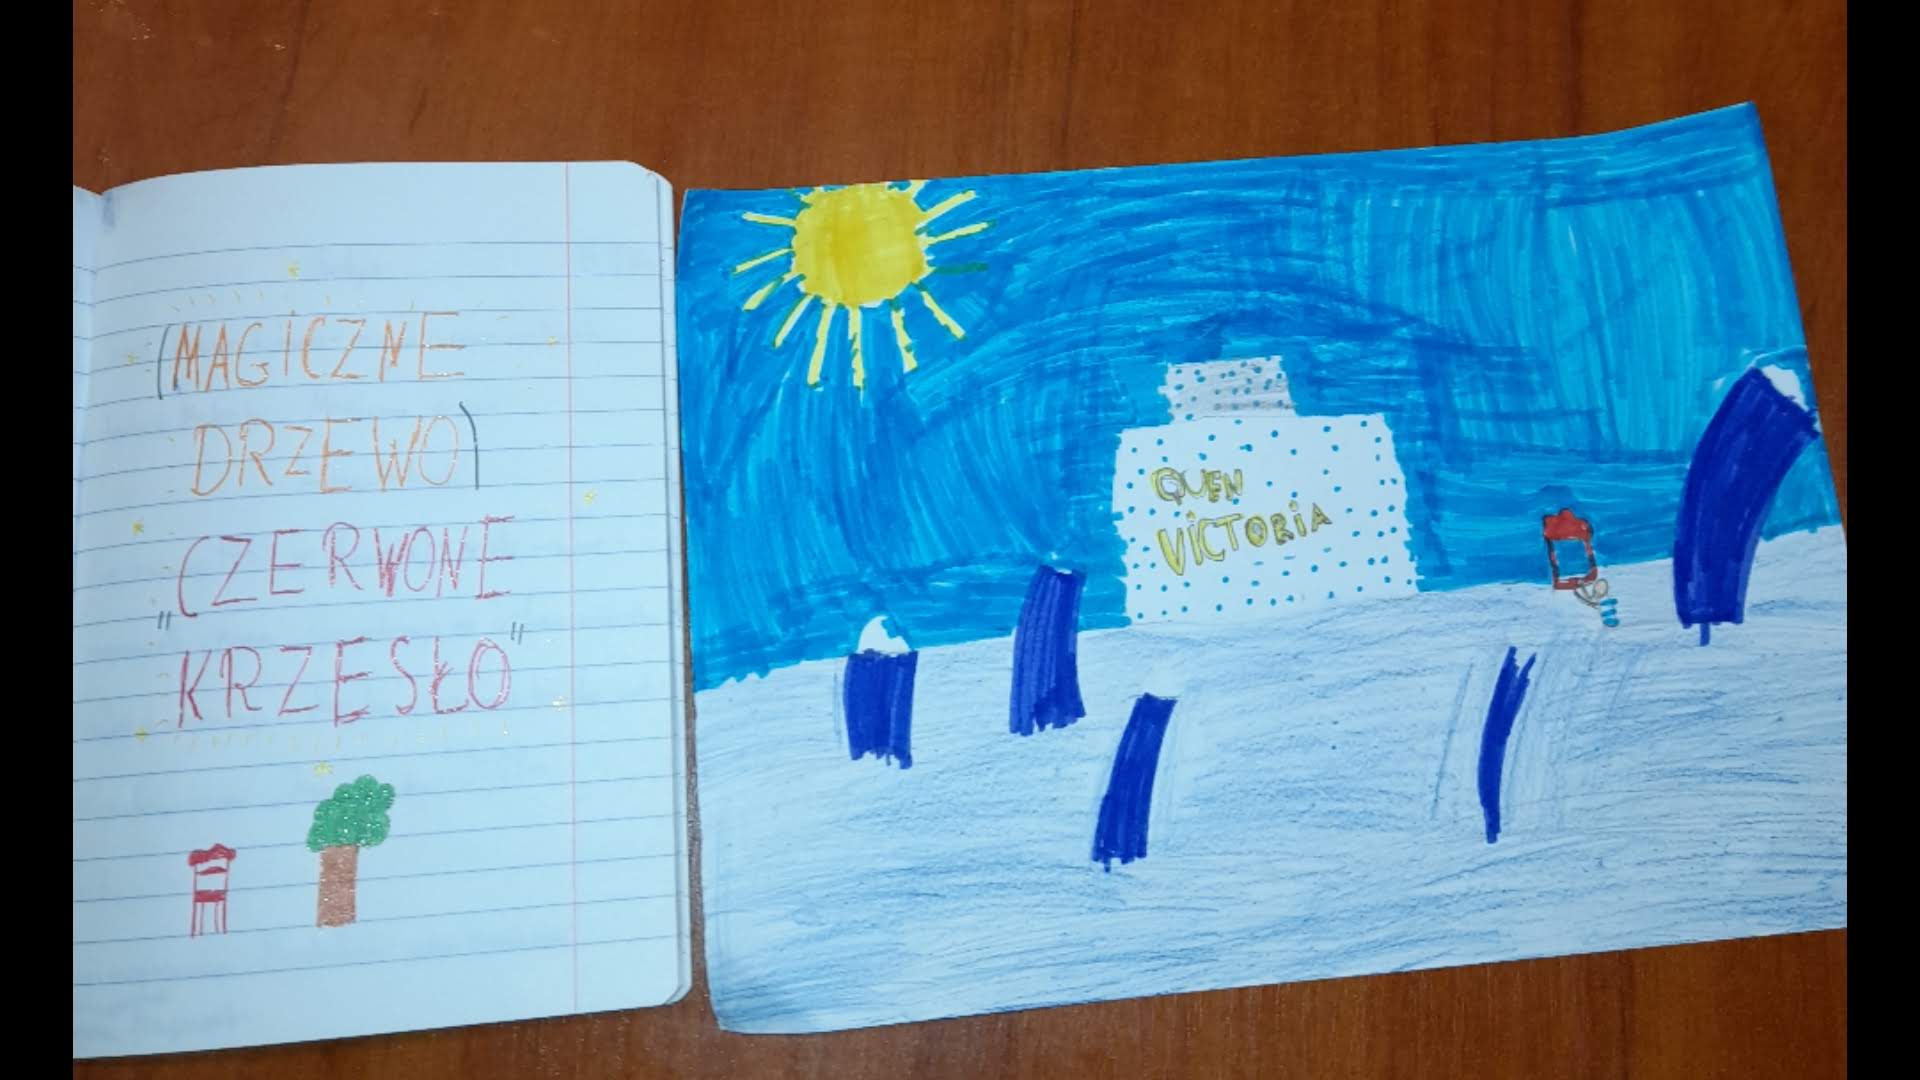 (MAGICZNE
DRZEWO)
„CZERWONE
KRZESŁO"
QUEN
VICTORIA